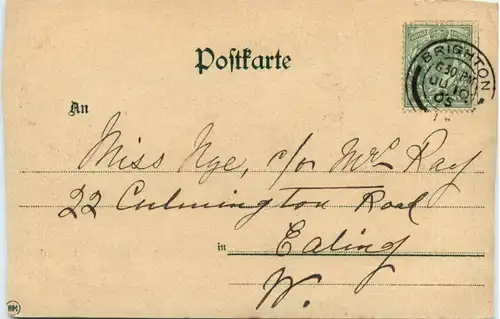 Postkarte
BRIGHTON
6.30 PM
JU 10
05
An
Miss Nye, c/o Mrs Ray
22 Culmington Road
in Ealing
W.